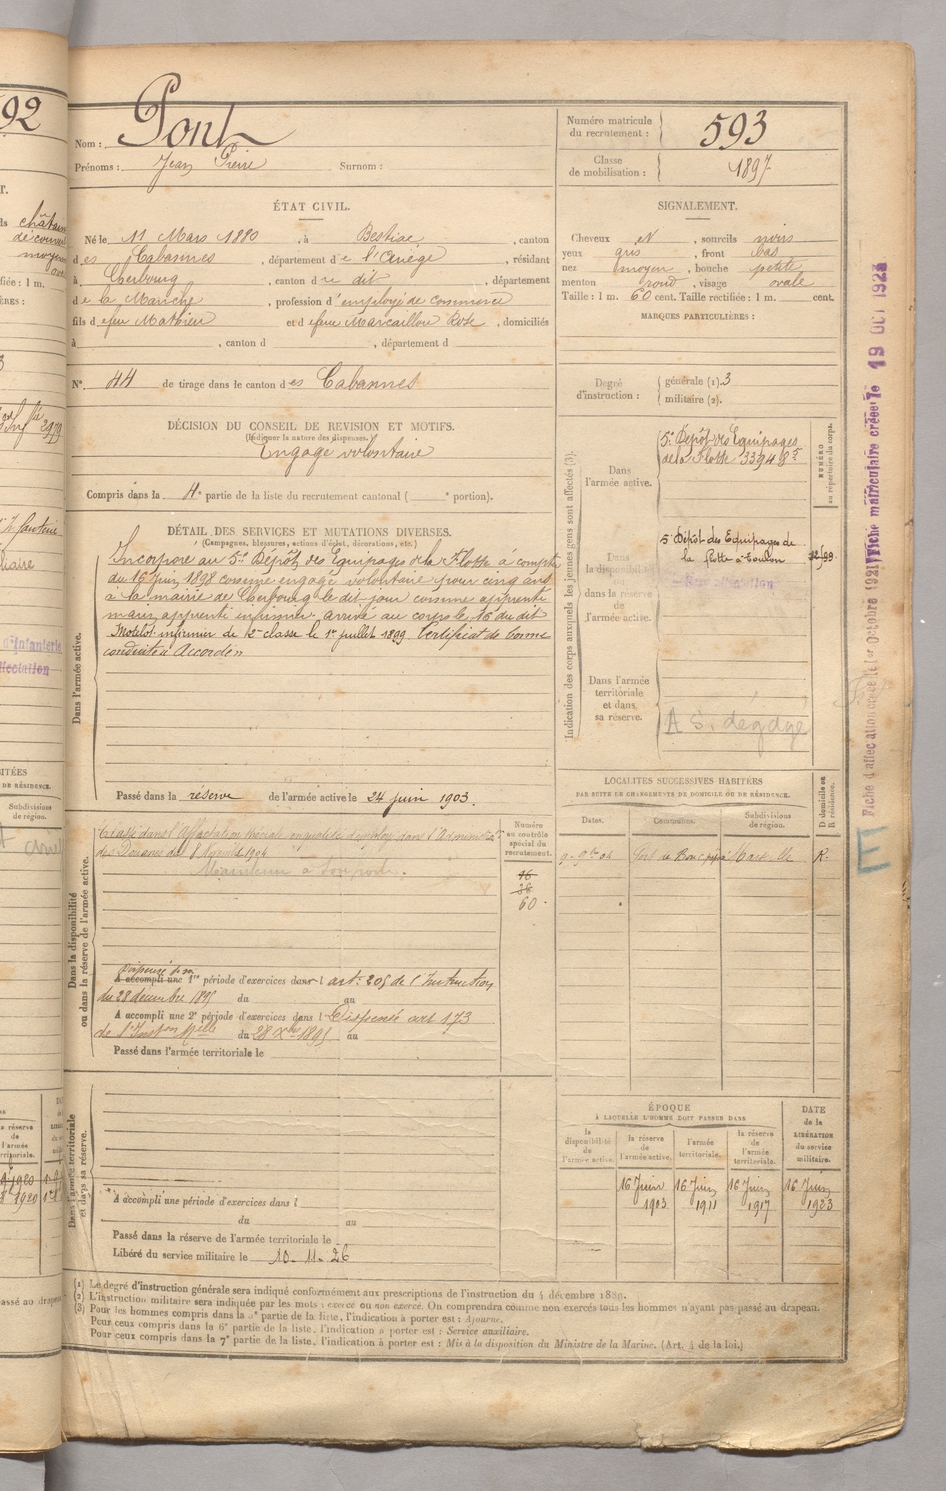 92
Nom : Pont
Prénoms : Jean Pierre Surnom :
Numéro matricule du recrutement : 593
Classe de mobilisation : 1897
ÉTAT CIVIL.
Né le 11 Mars 1880, à Bestiac, canton
des Cabannes, département de l'Ariège, résidant
à Cherbourg, canton du dit, département
de la Manche, profession d'employé de commerce
fils de feu Mathieu et de feue Marcaillou Rose, domiciliés
à , canton d , département d
N° 44 de tirage dans le canton des Cabannes
SIGNALEMENT.
Cheveux et, sourcils noirs
yeux gris, front bas
nez moyen, bouche petite
menton rond, visage ovale
Taille : 1 m. 60 cent. Taille rectifiée : 1 m. cent.
MARQUES PARTICULIÈRES :
Degré d'instruction : générale (1). 3
militaire (2).
DÉCISION DU CONSEIL DE REVISION ET MOTIFS.
(Indiquer la nature des dispenses.)
Engagé volontaire
Compris dans la 4e partie de la liste du recrutement cantonal ( e portion).
DÉTAIL DES SERVICES ET MUTATIONS DIVERSES.
(Campagnes, blessures, actions d'éclat, décorations, etc.)
Dans l'armée active.
Incorporé au 5e Dépôt des Equipages de la Flotte à compter
du 16 Juin 1898 comme engagé volontaire pour cinq ans
à la mairie de Cherbourg le dit jour comme apprenti-
marin apprenti infirmier. arrivé au corps le 16 du dit
Matelot infirmier de 2e classe le 1er juillet 1899. Certificat de bonne
conduite "Accordé"
Passé dans la réserve de l'armée active le 24 juin 1903.
Indication des corps auxquels les jeunes gens sont affectés (3).
NUMÉRO au répertoire du corps.
Dans l'armée active.
5e Dépôt des Equipages
de la Flotte 33948
Dans la disponibilité ou dans la réserve de l'armée active.
5 Dépôt des Equipages de
la Flotte à Toulon
Dans l'armée territoriale et dans sa réserve.
A S. dégagé
Dans la disponibilité ou dans la réserve de l'armée active.
Classé dans l'Affectation spéciale
des Douanes du 8 1904
Maintenu à son poste.
Numéro au contrôle spécial du recrutement.
16
36
60
Dispensé de sa
A accompli une 1re période d'exercices dans l art. 205 de l'Instruction
du 28 décembre 1895 du au
A accompli une 2e période d'exercices dans l Dispensé art 173
de l'Inston Melle du 28 Xbre 1895 au
Passé dans l'armée territoriale le
LOCALITÉS SUCCESSIVES HABITÉES
PAR SUITE DE CHANGEMENTS DE DOMICILE OU DE RÉSIDENCE.
Dates. Communes. Subdivisions de région. D domicile ou R résidence.
9. 9bre 04 Port de Bouc Marseille R.
Dans l'armée territoriale et dans sa réserve.
A accompli une période d'exercices dans l
du au
Passé dans la réserve de l'armée territoriale le
Libéré du service militaire le 10. 11. 26
ÉPOQUE
À LAQUELLE L'HOMME DOIT PASSER DANS
la disponibilité de l'armée active. la réserve de l'armée active. l'armée territoriale. la réserve de l'armée territoriale. DATE de la LIBÉRATION du service militaire.
16 Juin 1903 16 Juin 1911 16 Juin 1917 16 Juin 1923
(1) Le degré d'instruction générale sera indiqué conformément aux prescriptions de l'instruction du 4 décembre 1889.
(2) L'instruction militaire sera indiquée par les mots : exercé ou non exercé. On comprendra comme non exercés tous les hommes n'ayant pas passé au drapeau.
(3) Pour les hommes compris dans la 5e partie de la liste, l'indication à porter est : Ajourné.
Pour ceux compris dans la 6e partie de la liste, l'indication à porter est : Service auxiliaire.
Pour ceux compris dans la 7e partie de la liste, l'indication à porter est : Mis à la disposition du Ministre de la Marine. (Art. 4 de la loi.)
Fiche d'affectation créée le 1er Octobre 1921
Fiche matriculaire créée le 19 OCT 1923
E